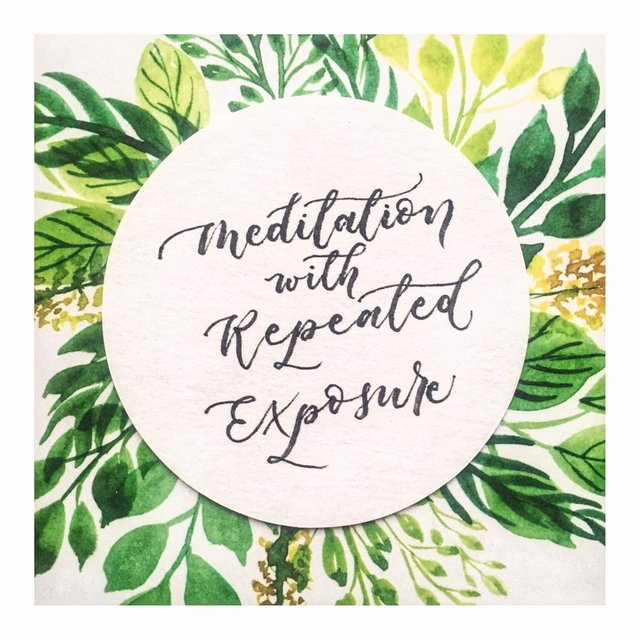 meditation
with
Repeated
Exposure